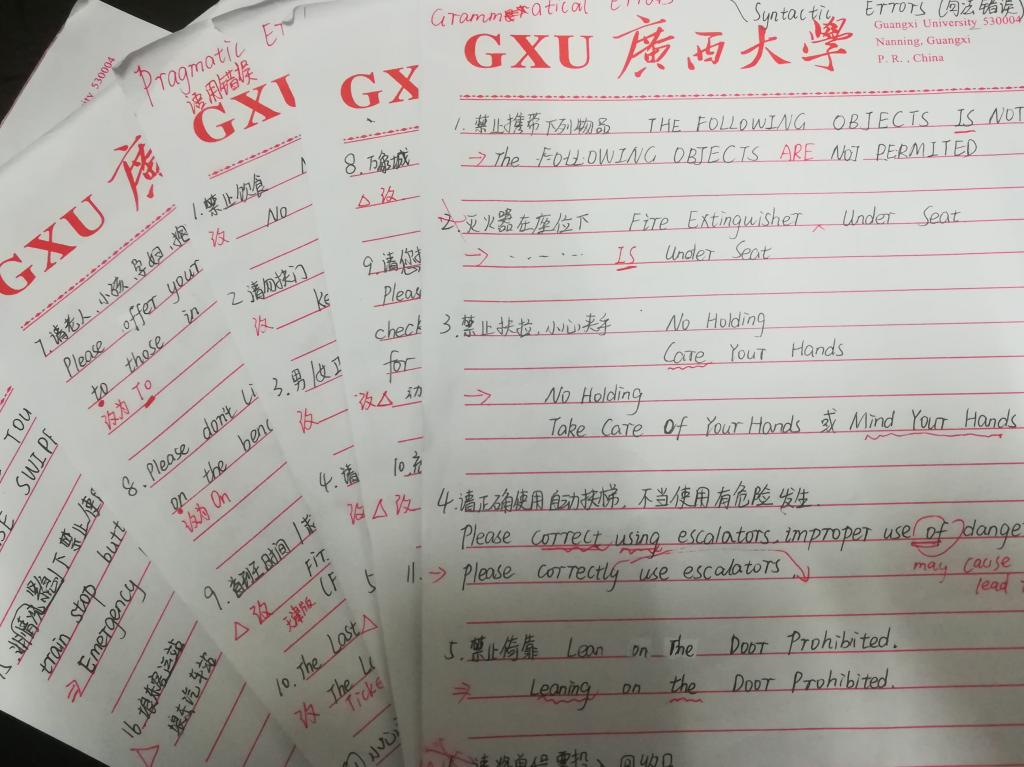 Grammatical Errors
Syntactic Errors (句法错误)
GXU 廣西大學
Guangxi University 530004
Nanning, Guangxi
P. R., China
1. 禁止携带下列物品 THE FOLLOWING OBJECTS IS NOT
→ The FOLLOWING OBJECTS ARE NOT PERMITED
2. 灭火器在座位下 Fire Extinguisher Under Seat
→ ...... IS Under Seat
3. 禁止扶拉,小心夹手 No Holding
Care Your Hands
→ No Holding
Take Care Of Your Hands 或 Mind Your Hands
4. 请正确使用自动扶梯,不当使用有危险发生.
Please correct using escalators, improper use of dange
→ Please correctly use escalators.
may cause
lead
5. 禁止倚靠 Lean on The Door Prohibited.
⇒ Leaning on the Door Prohibited.
GX
8. 万象城
△ 改
9. 请您
Pleas
check
for
改△
10.
改 △ 改
11.
Pragmatic Er
语用错误
GXU
1. 禁止饮食
No
改
2. 请勿扶门
改
3. 男/女卫
改
4. 请
改
5
GXU 廣
7. 请老人、小孩、孕妇、抱
Please offer your
to those in
改为 To
8. Please don't Li
on the benc
改为 On
9. 首班车时间/
△ 改 天津版
10. The Last
改 The L
Ticke
YOU
SWIPE
train stop butt
⇒ Emergency
16.
△
530004